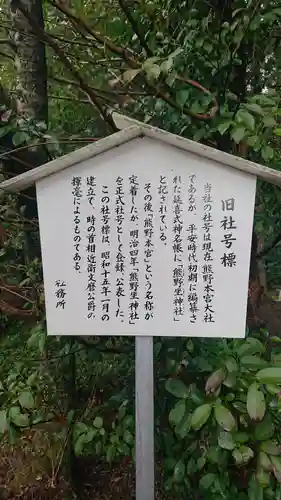 旧社号標
当社の社号は現在「熊野本宮大社」
であるが、平安時代初期に編纂さ
れた延喜式神名帳に、「熊野坐神社」
と記されている。
その後「熊野本宮」という名称が
定着したが、明治四年「熊野坐神社」
を正式社号として登録、公表した。
この社号標は、昭和十五年一月の
建立で、時の首相近衛文麿公爵の
揮毫によるものである。
社務所